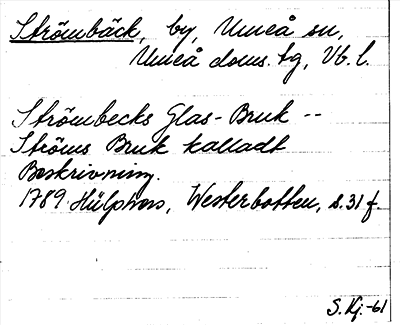 Strömbäck, by, Umeå sn,
Umeå doms. tg, Vb. l.
Strömbecks Glas-Bruk --
Ströms Bruk kalladt
Beskrivning.
1789 Hülphers, Westerbotten, s. 31 f.
S. Kj. -61